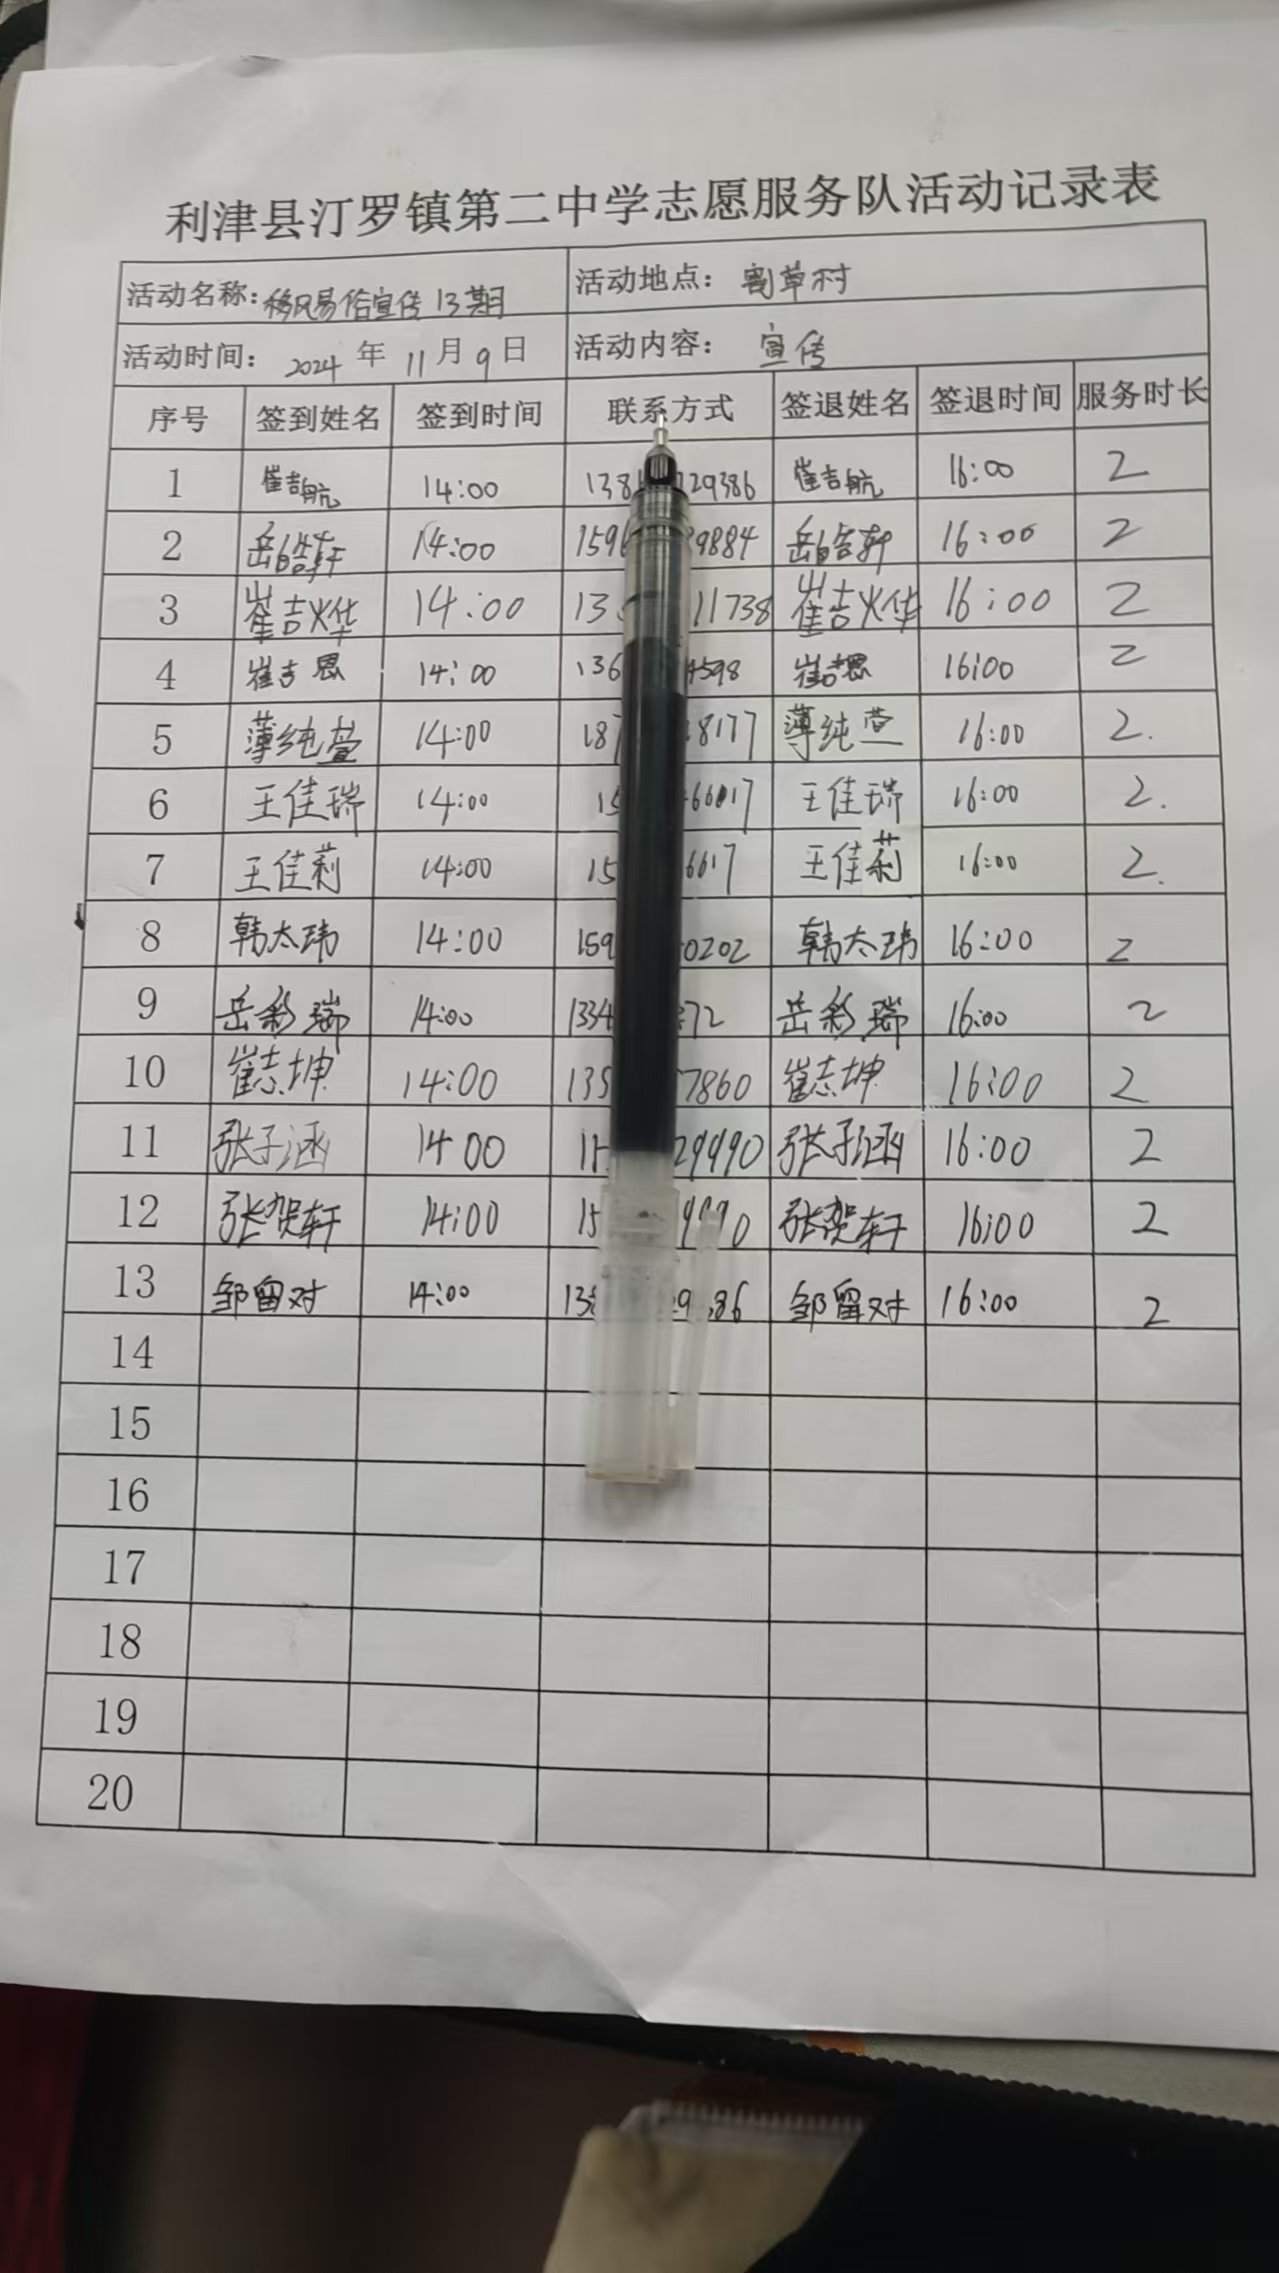 利津县汀罗镇第二中学志愿服务队活动记录表
活动名称：移风易俗宣传13期 活动地点：割草村
活动时间：2024年11月9日 活动内容：宣传
序号 签到姓名 签到时间 联系方式 签退姓名 签退时间 服务时长
1 崔吉航 14:00 崔吉航 16:00 2
2 岳皓轩 14:00 岳皓轩 16:00 2
3 崔吉烨 14:00 崔吉烨 16:00 2
4 崔吉恩 14:00 崔吉恩 16:00 2
5 薄纯萱 14:00 薄纯萱 16:00 2.
6 王佳瑞 14:00 王佳瑞 16:00 2.
7 王佳莉 14:00 王佳莉 16:00 2.
8 韩太玮 14:00 韩太玮 16:00 2
9 岳彩瑞 14:00 岳彩瑞 16:00 2
10 崔志坤 14:00 崔志坤 16:00 2
11 张子涵 14 00 张子涵 16:00 2
12 张贺轩 14:00 张贺轩 16:00 2
13 邹留对 14:00 邹留对 16:00 2
14
15
16
17
18
19
20